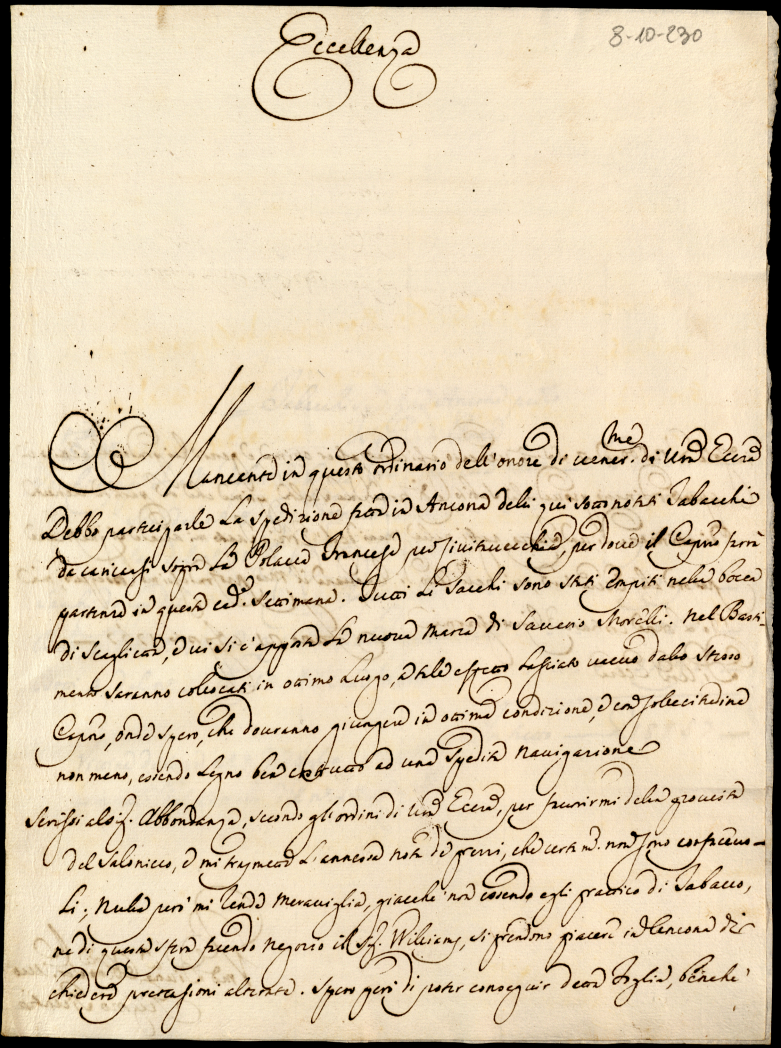 Eccellenza
8-10-230
Mancante in questo ordinario dell'onore di vener.me di Vra Eccza
Debbo participarle La Spedizione fatta in Ancona delli qui sottonotati Tabacchi
da caricarsi sopra La Polacca Francese, per Civitavecchia, per dove il Capno farà
partenza in questa cad.e Settimana. Tutti Li Sacchi sono stati Empiti nella bocca
di Scaglietta, e vi si è apposta La nuova marca di Saverio Morelli. Nel Basti-
mento saranno collocati in ottimo Luogo, a tale effetto Lasciato vacuo dallo stesso
Capno, onde spero, che dovranno giungere in ottima condizione, e con sollecitudine
non meno, essendo Legno ben costrutto ad una Spedita navigazione
Scrissi al Sig. Abbondanza, secondo gli ordini di Vra Eccza, per favorirmi della provista
del Salonicco, e mi trasmette L'annessa nota de prezzi, che certam. non sono confacevo-
Li; Nulla però mi rende meraviglia, giacchè non essendo egli prattico di Tabacco,
ne di questa sfera facendo negozio il Sig. Williams, si prendono piacere in Ancona di
chiedere pretensioni alterate. Spero però di poter conseguir detta Foglia, benchè